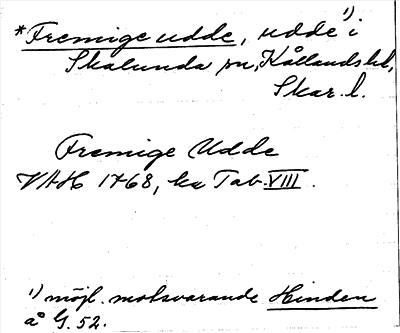 *Fremige udde, udde¹⁾ i
Skalunda sn, Kållands hd,
Skar. l.
Fremige Udde
VAH 1768, ka Tab. VIII.
¹⁾ möjl. motsvarande Hinden
å G. 52.